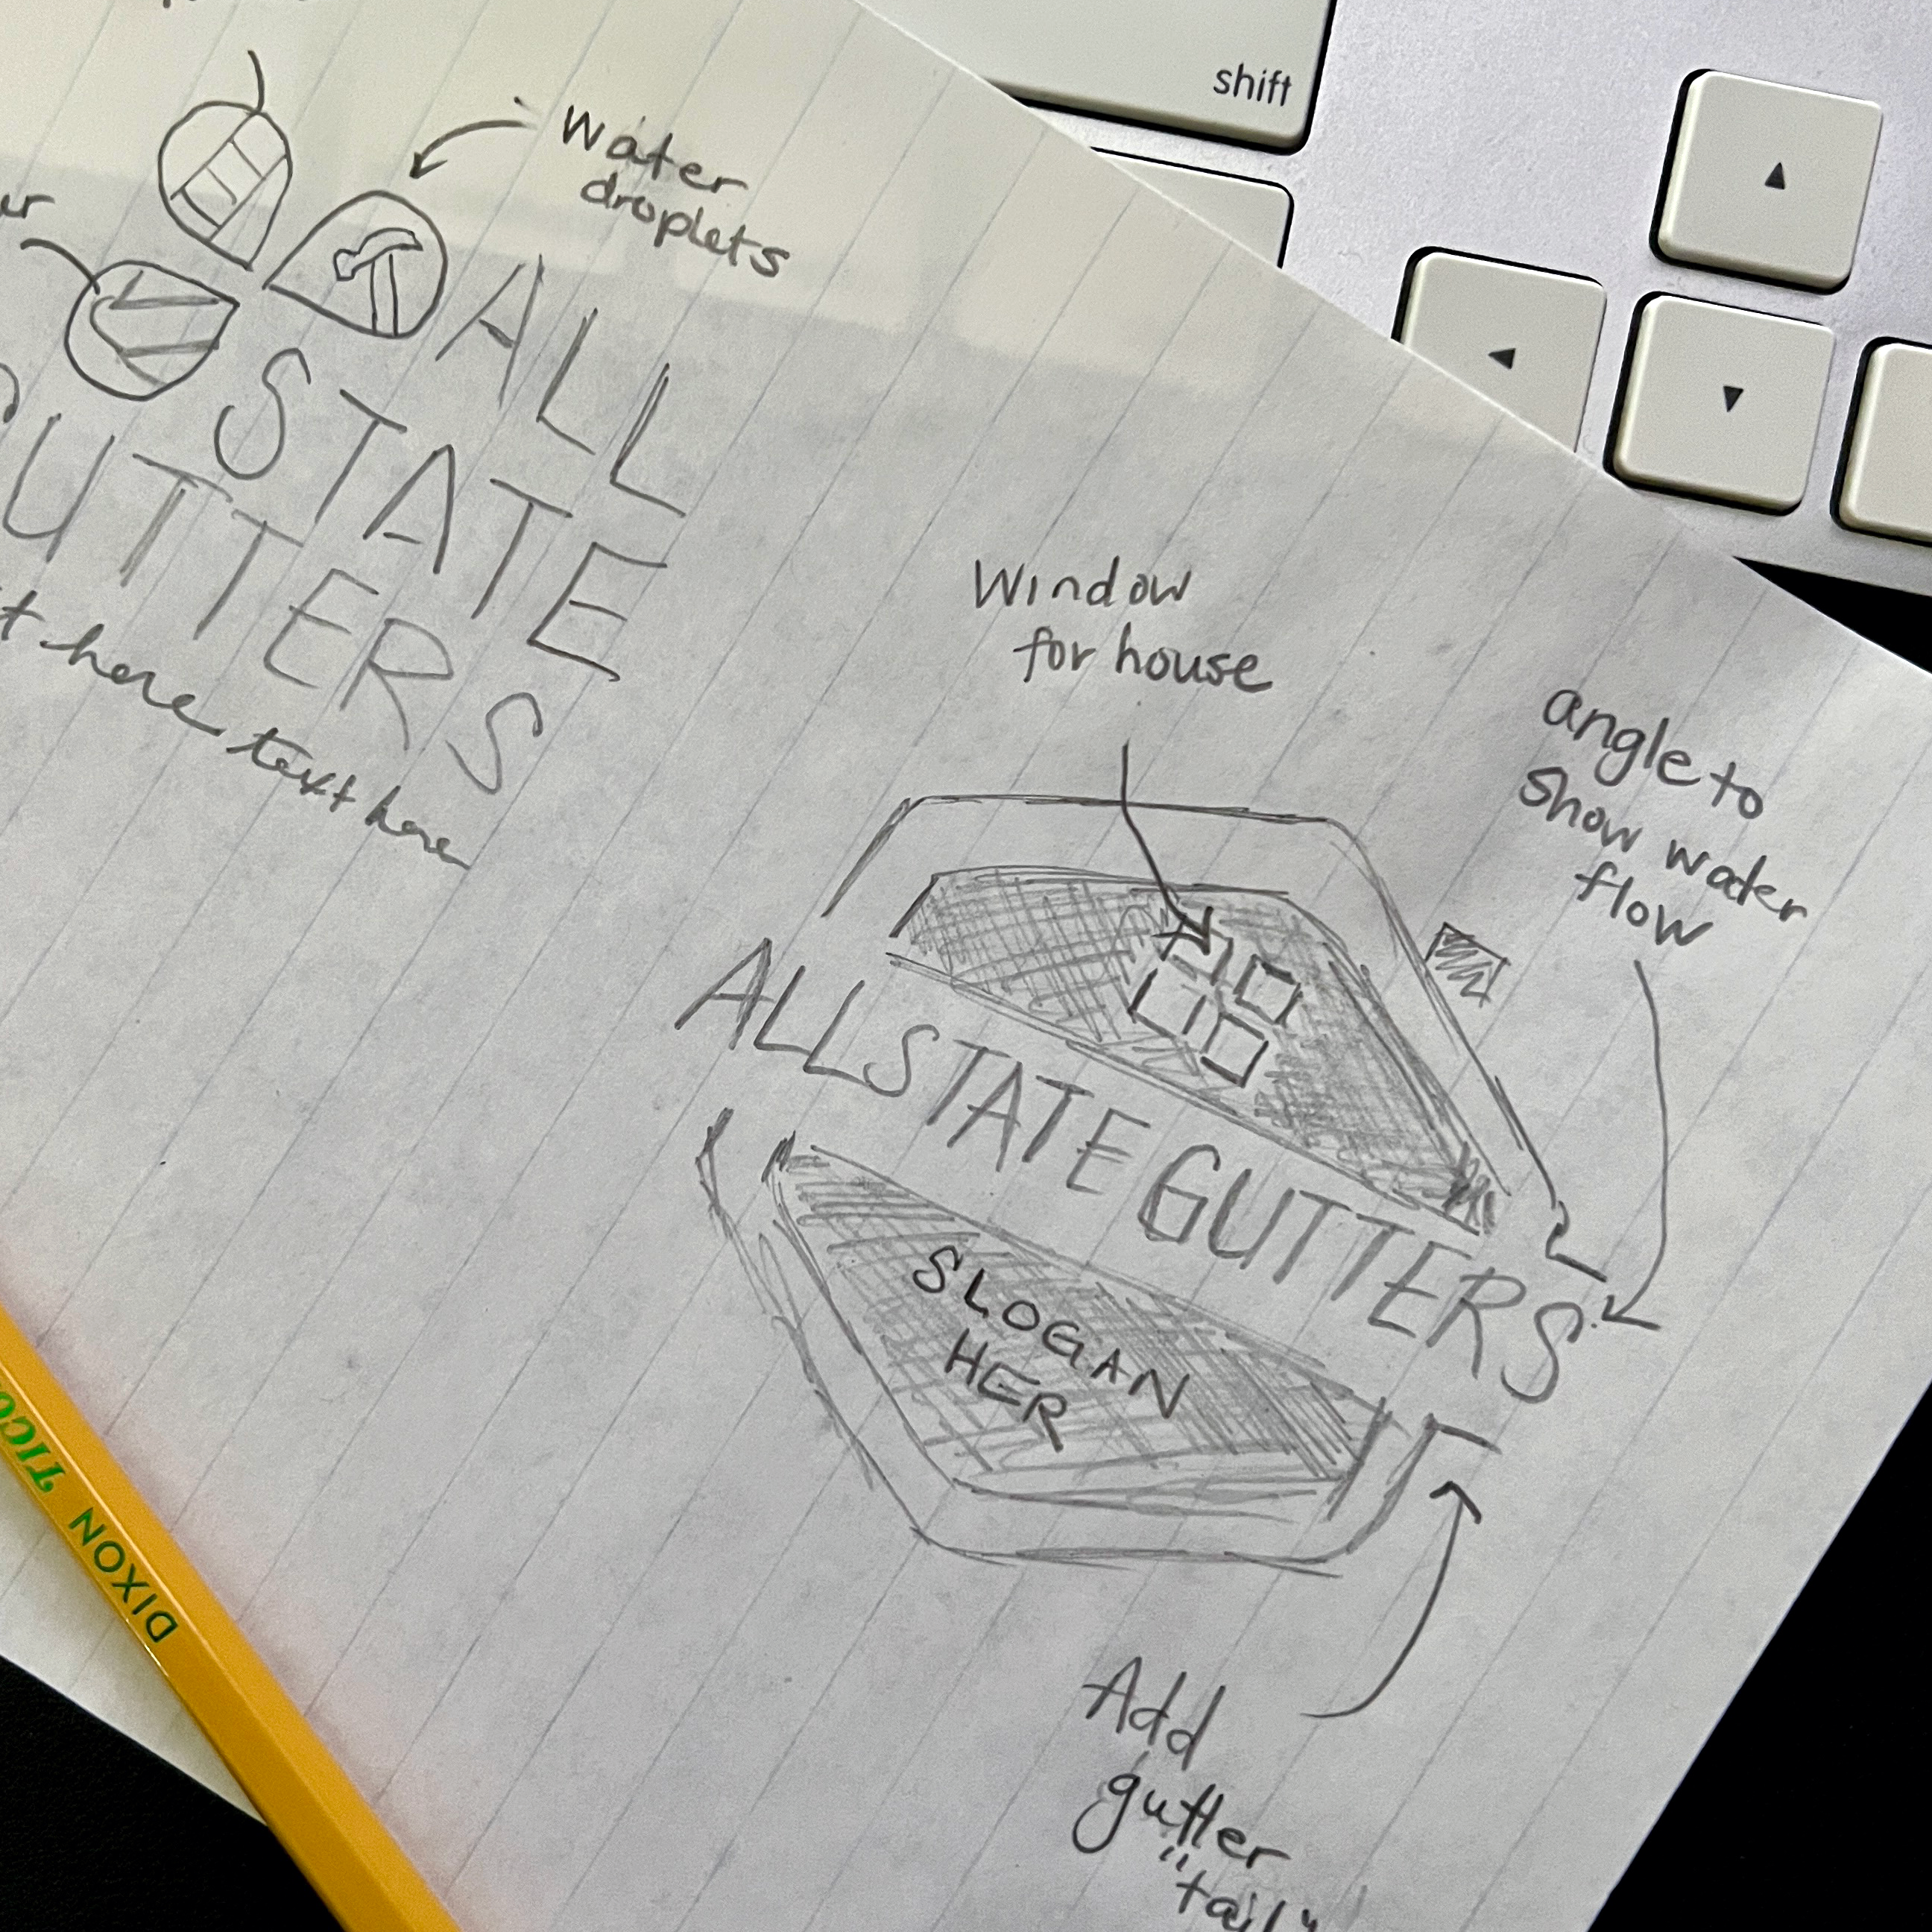 shift
▲
◄
▼
Water
droplets
ALL
STATE
UTTERS
t here text here
Window
for house
angle to
show water
flow
ALLSTATE GUTTERS
SLOGAN
HER
Add
gutter
"tail"
DIXON TICO